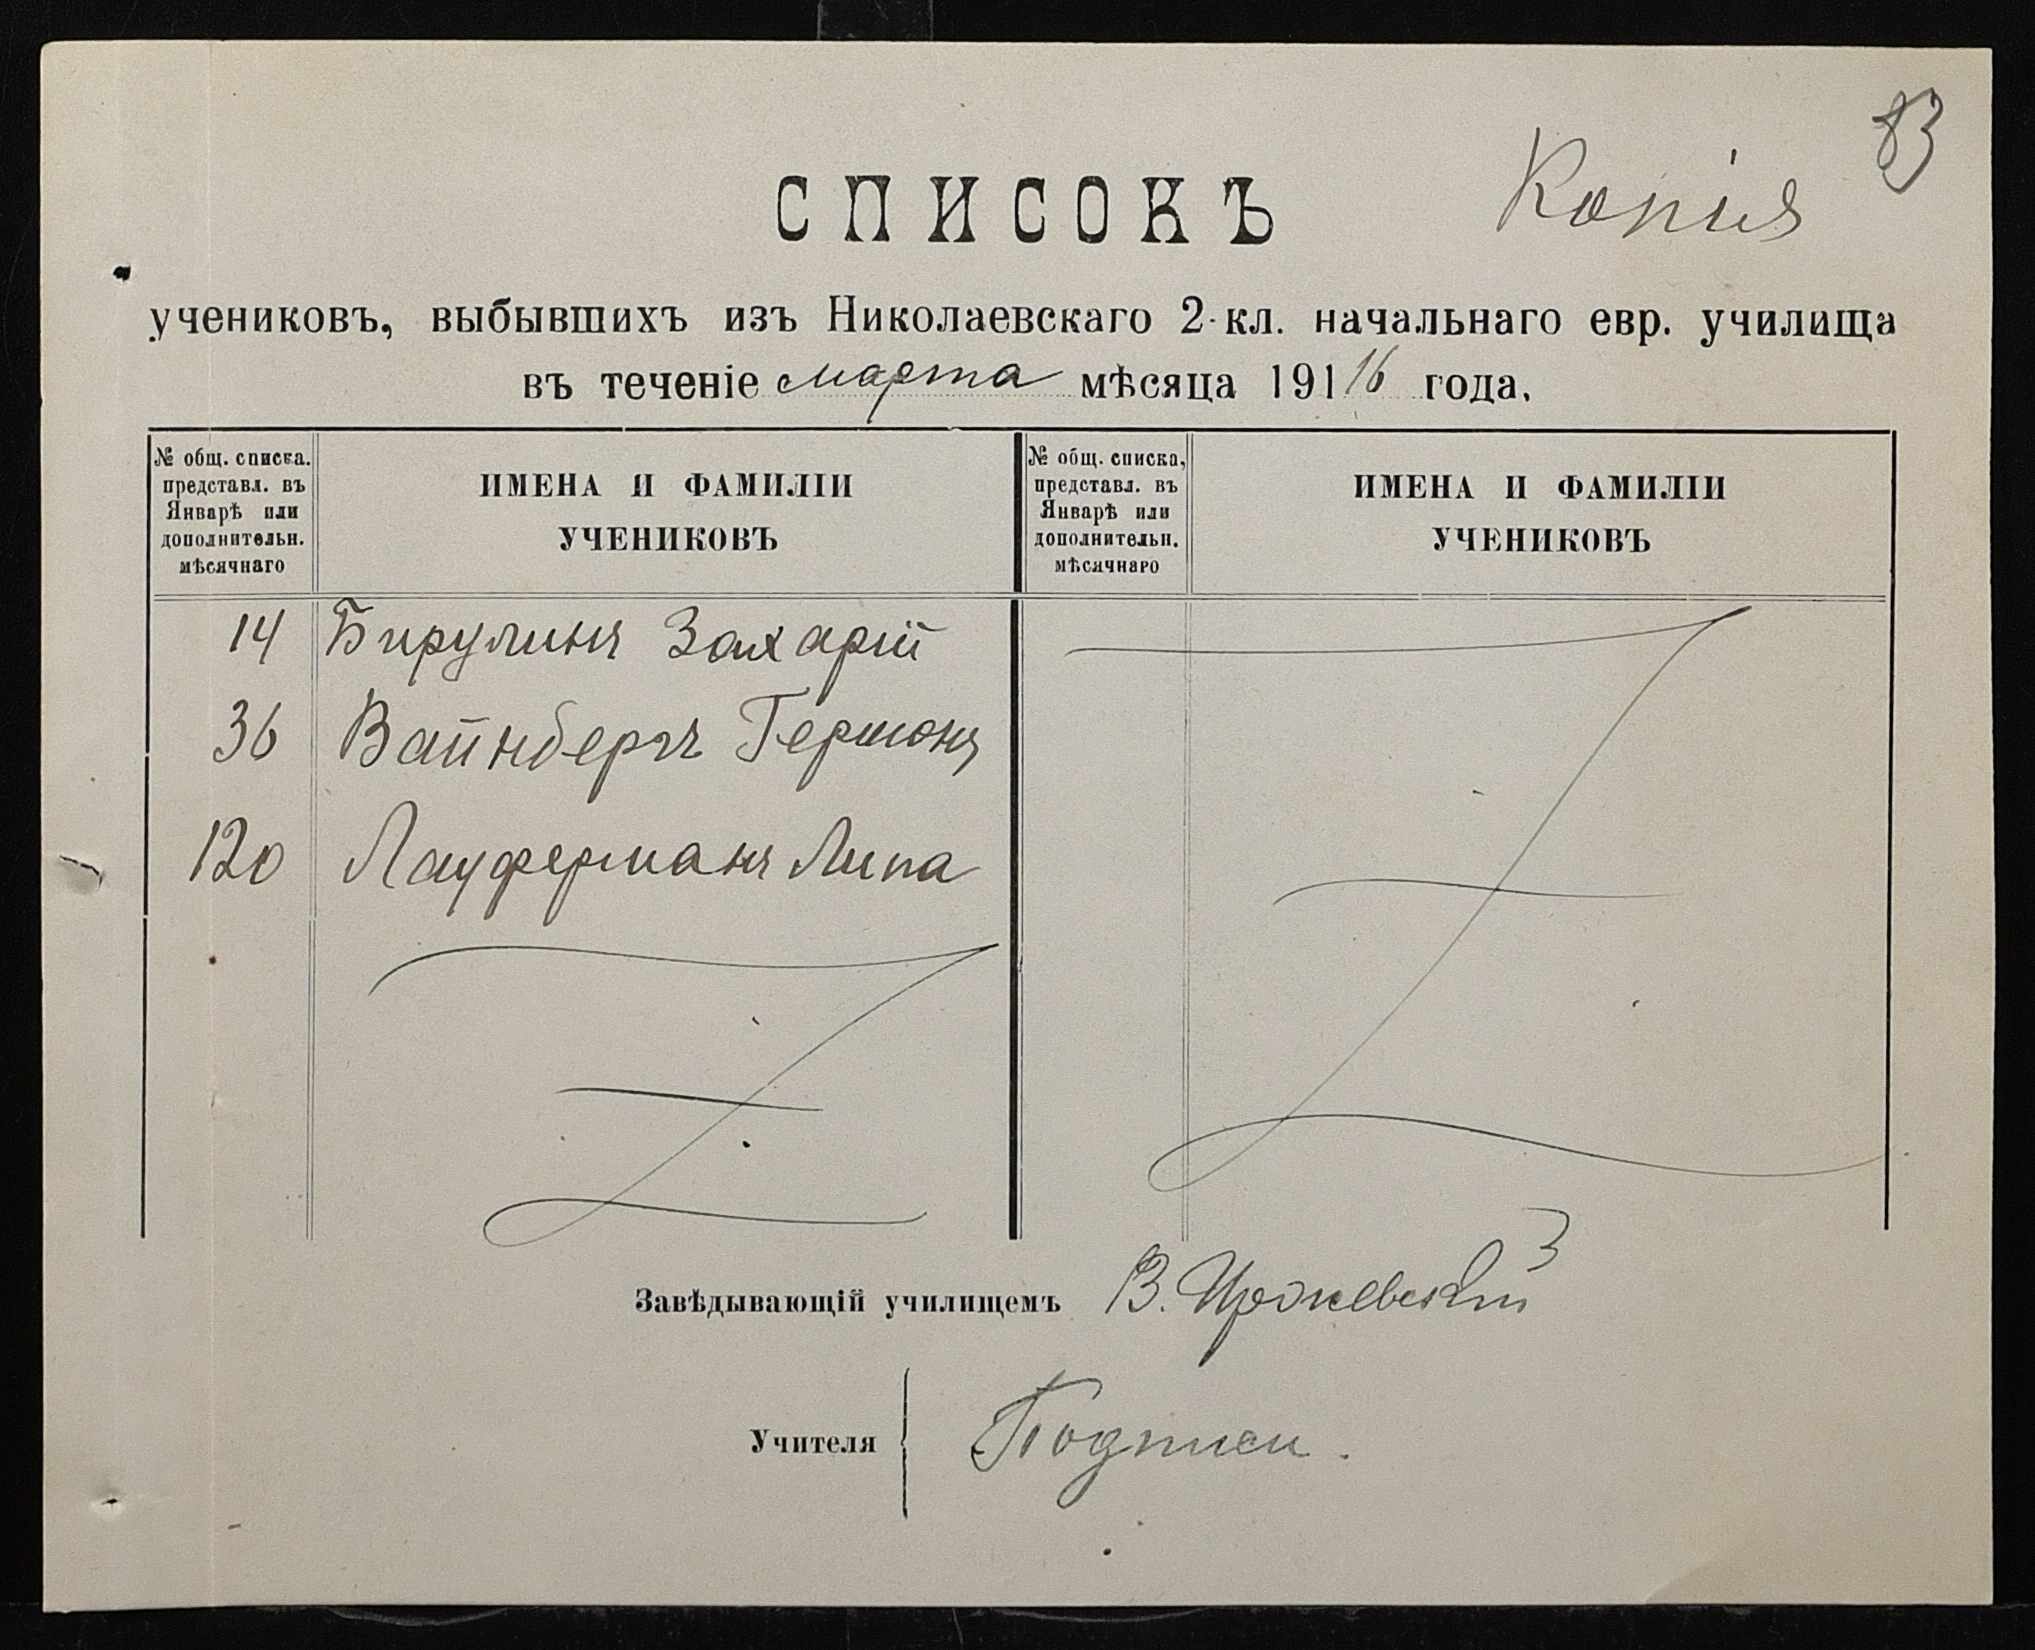 83
Копія
СПИСОКЪ
учениковъ, выбывшихъ изъ Николаевскаго 2-кл. начальнаго евр. училища
въ теченіе марта мѣсяца 19116 года.
№ общ. списка.
представл. въ
Январѣ или
дополнительн.
мѣсячнаго
ИМЕНА И ФАМИЛІИ
УЧЕНИКОВЪ
№ общ. списка,
представл. въ
Январѣ или
дополнительн.
мѣсячнаго
ИМЕНА И ФАМИЛІИ
УЧЕНИКОВЪ
14 Бирулинъ Захарій
36 Вайнбергъ Гершонъ
120 Лауферманъ Липа
Завѣдывающій училищемъ В.
Учителя Подписи.